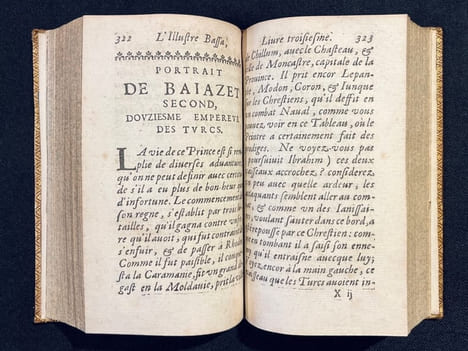 322 L'Illustre Bassa,
PORTRAIT
DE BAIAZET
SECOND,
DOVZIESME EMPEREVR
DES TVRCS.
LA vie de ce Prince est si rem-
plie de diverses advantures,
qu'on ne peut definir avec certitu-
de s'il a eu plus de bon-heur que
d'infortune. Le commencement de
son regne, s'establit par trois ba-
tailles, qu'il gagna contre
qu'il avoit, qui fut contraint
s'enfuir, & de passer à Rhodes
Comme il fut paisible, il conque-
sta la Caramanie, fit un grand de-
gast en la Moldavie, prit la
Liure troisiesme. 323
de Challum, avec le Chasteau, &
de Moncastre, capitale de la
Prouince. Il prit encor Lepan-
Modon, Coron, & Iunque
sur les Chrestiens, qu'il deffit en
un combat Naual, comme vous
pouuez voir en ce Tableau, où le
Peintre a certainement fait des
prodiges. Ne voyez-vous pas
(poursuiuit Ibrahim) ces deux
vaisseaux accrochez? considerez
un peu avec quelle ardeur, les
attaquants semblent aller au com-
& comme vn des Ianissai-
voulant sauter dans ce bord, a
repoussé par ce Chrestien: com-
en tombant il a saisi son enne-
qu'il entraisne auecque luy;
voyez encor à la main gauche, ce
vaisseau que les Turcs auoient in-
X ij